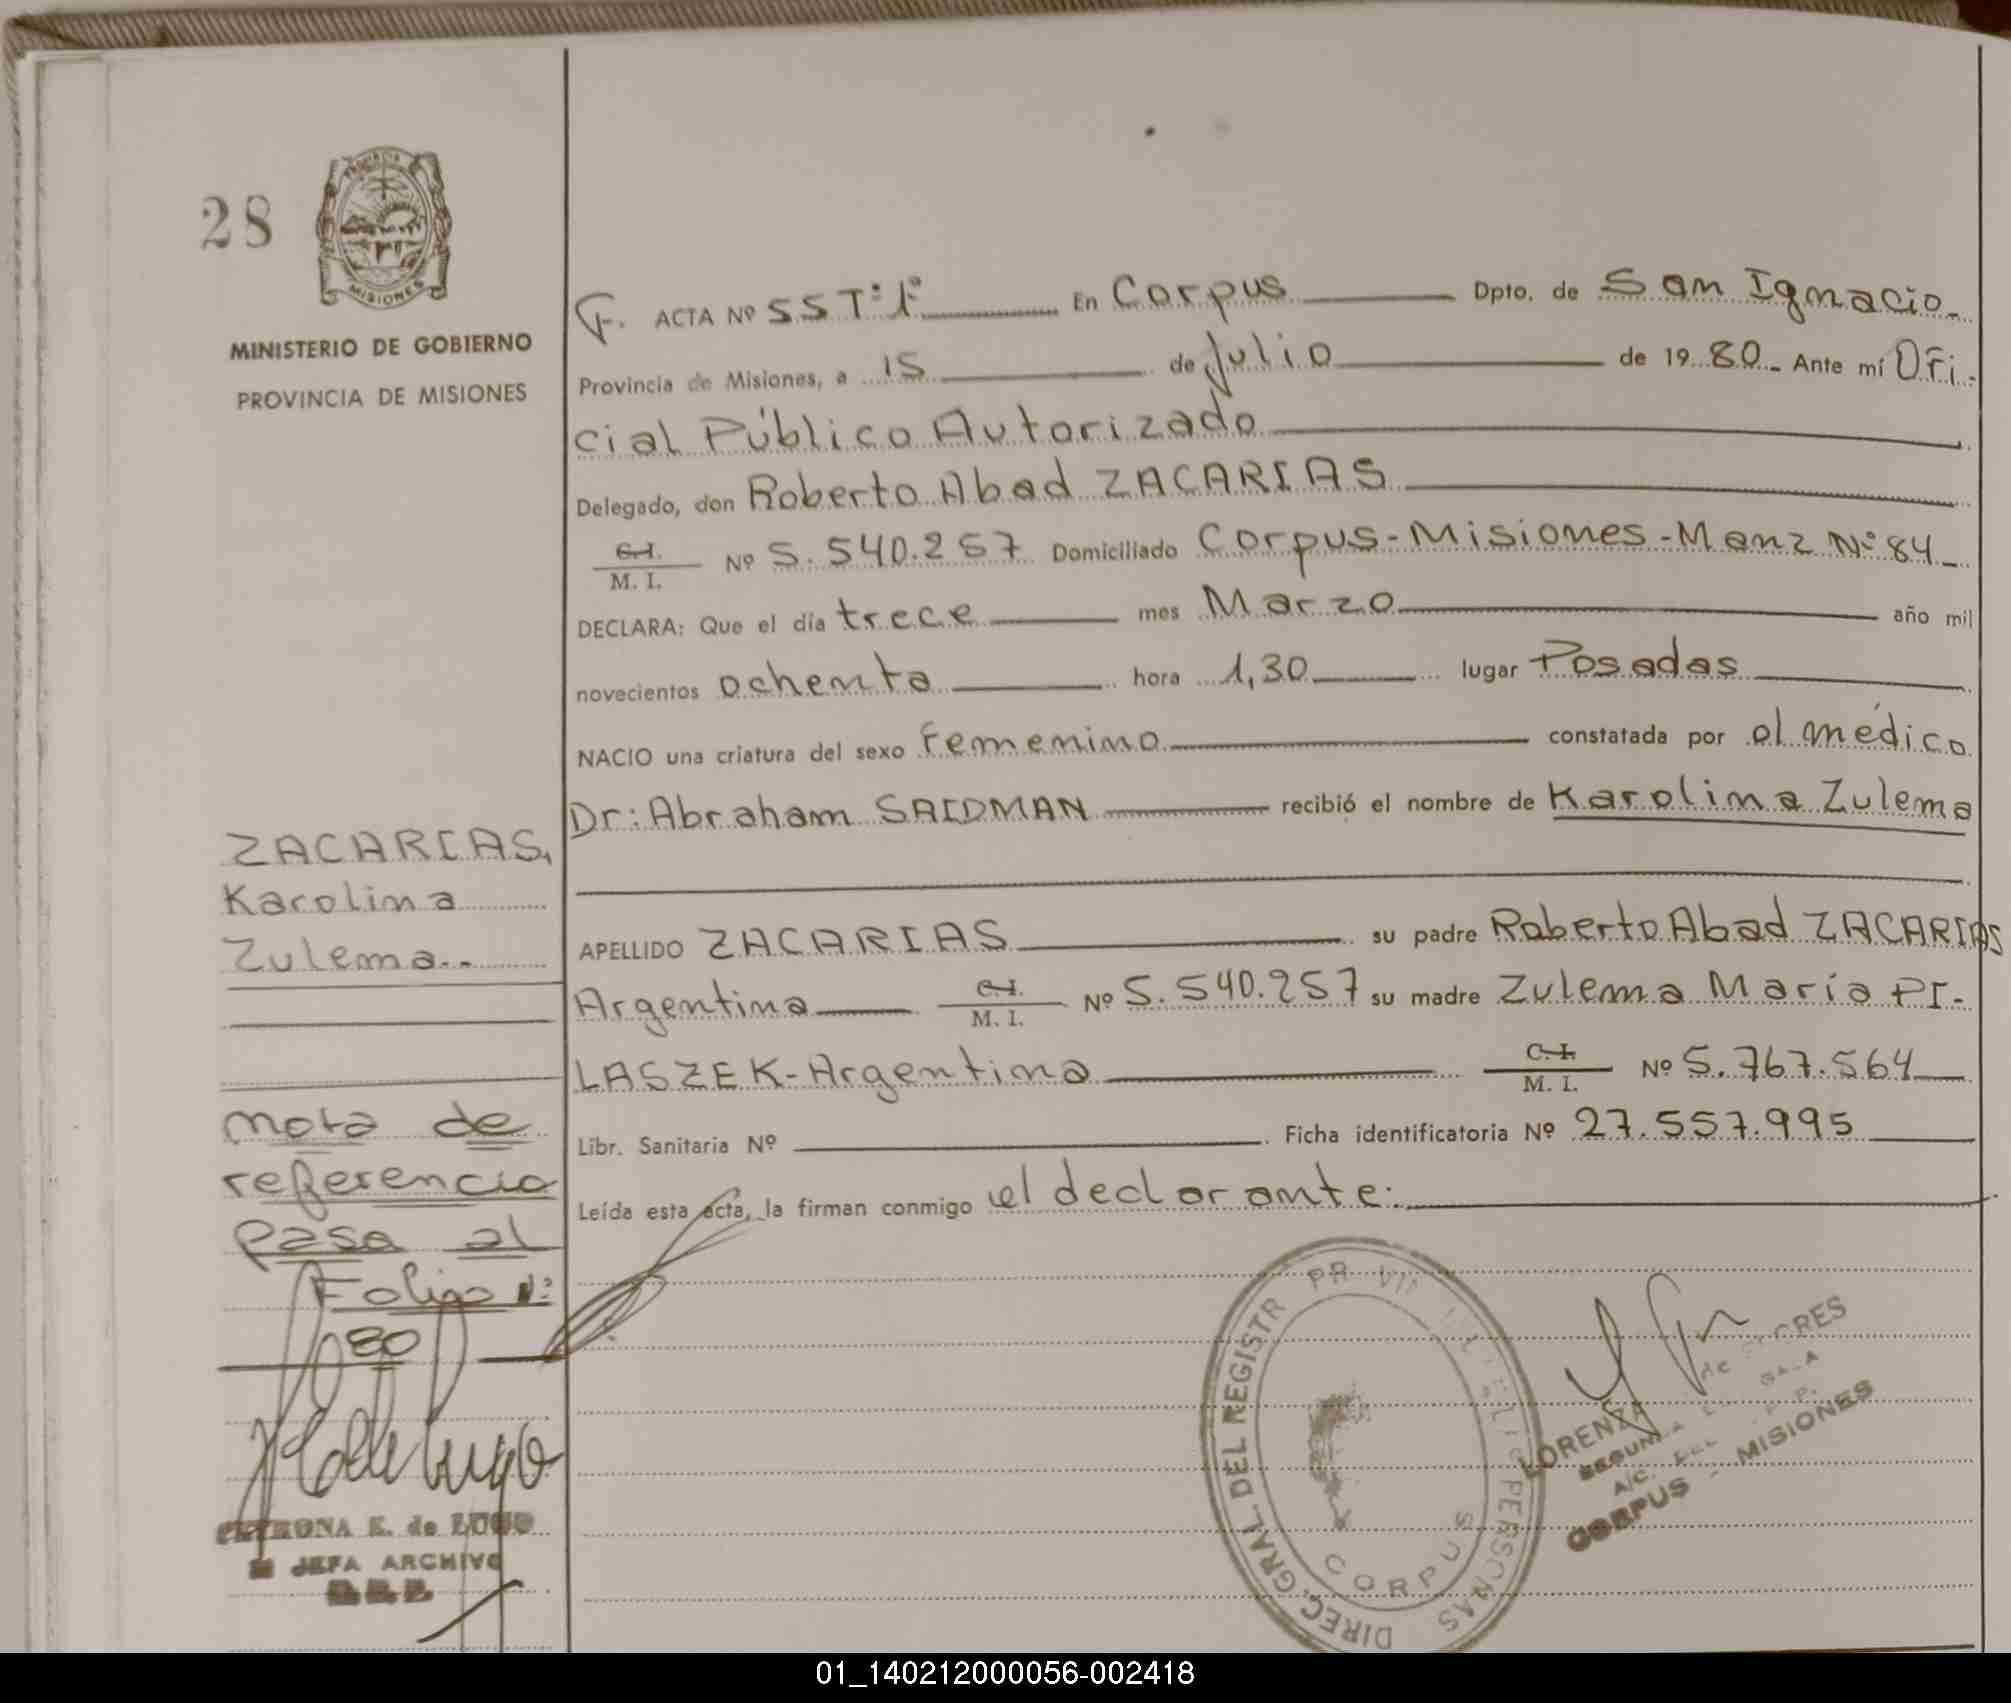 28
PROVINCIA
MISIONES
MINISTERIO DE GOBIERNO
PROVINCIA DE MISIONES
F. ACTA Nº 55 Tº 1º En Corpus Dpto. de San Ignacio.
Provincia de Misiones, a 15 de Julio de 1980.- Ante mí Ofi-
cial Público Autorizado
Delegado, don Roberto Abad ZACARIAS
C.I. M. I. Nº 5.540.257 Domiciliado Corpus-Misiones-Manz Nº 84-
DECLARA: Que el día trece mes Marzo año mil
novecientos ochenta hora 1,30 lugar Posadas
NACIO una criatura del sexo Femenino constatada por el médico
Dr: Abraham SAIDMAN recibió el nombre de Karolina Zulema
APELLIDO ZACARIAS su padre Roberto Abad ZACARIAS
Argentina C.I. M. I. Nº 5.540.257 su madre Zulema María PI-
LASZEK-Argentina C.I. M. I. Nº 5.767.564
Libr. Sanitaria Nº Ficha identificatoria Nº 27.557.995
Leída esta acta, la firman conmigo el declarante:
ZACARIAS,
Karolina
Zulema.-
nota de
referencia
pasa al
Folio Nº
80
PETRONA E. de LUGO
JEFA ARCHIVO
DIREC. GRAL DEL REGISTR PR
PERSONAS
CORPUS
LORENZA de
A/C.
CORPUS - MISIONES
01_140212000056-002418